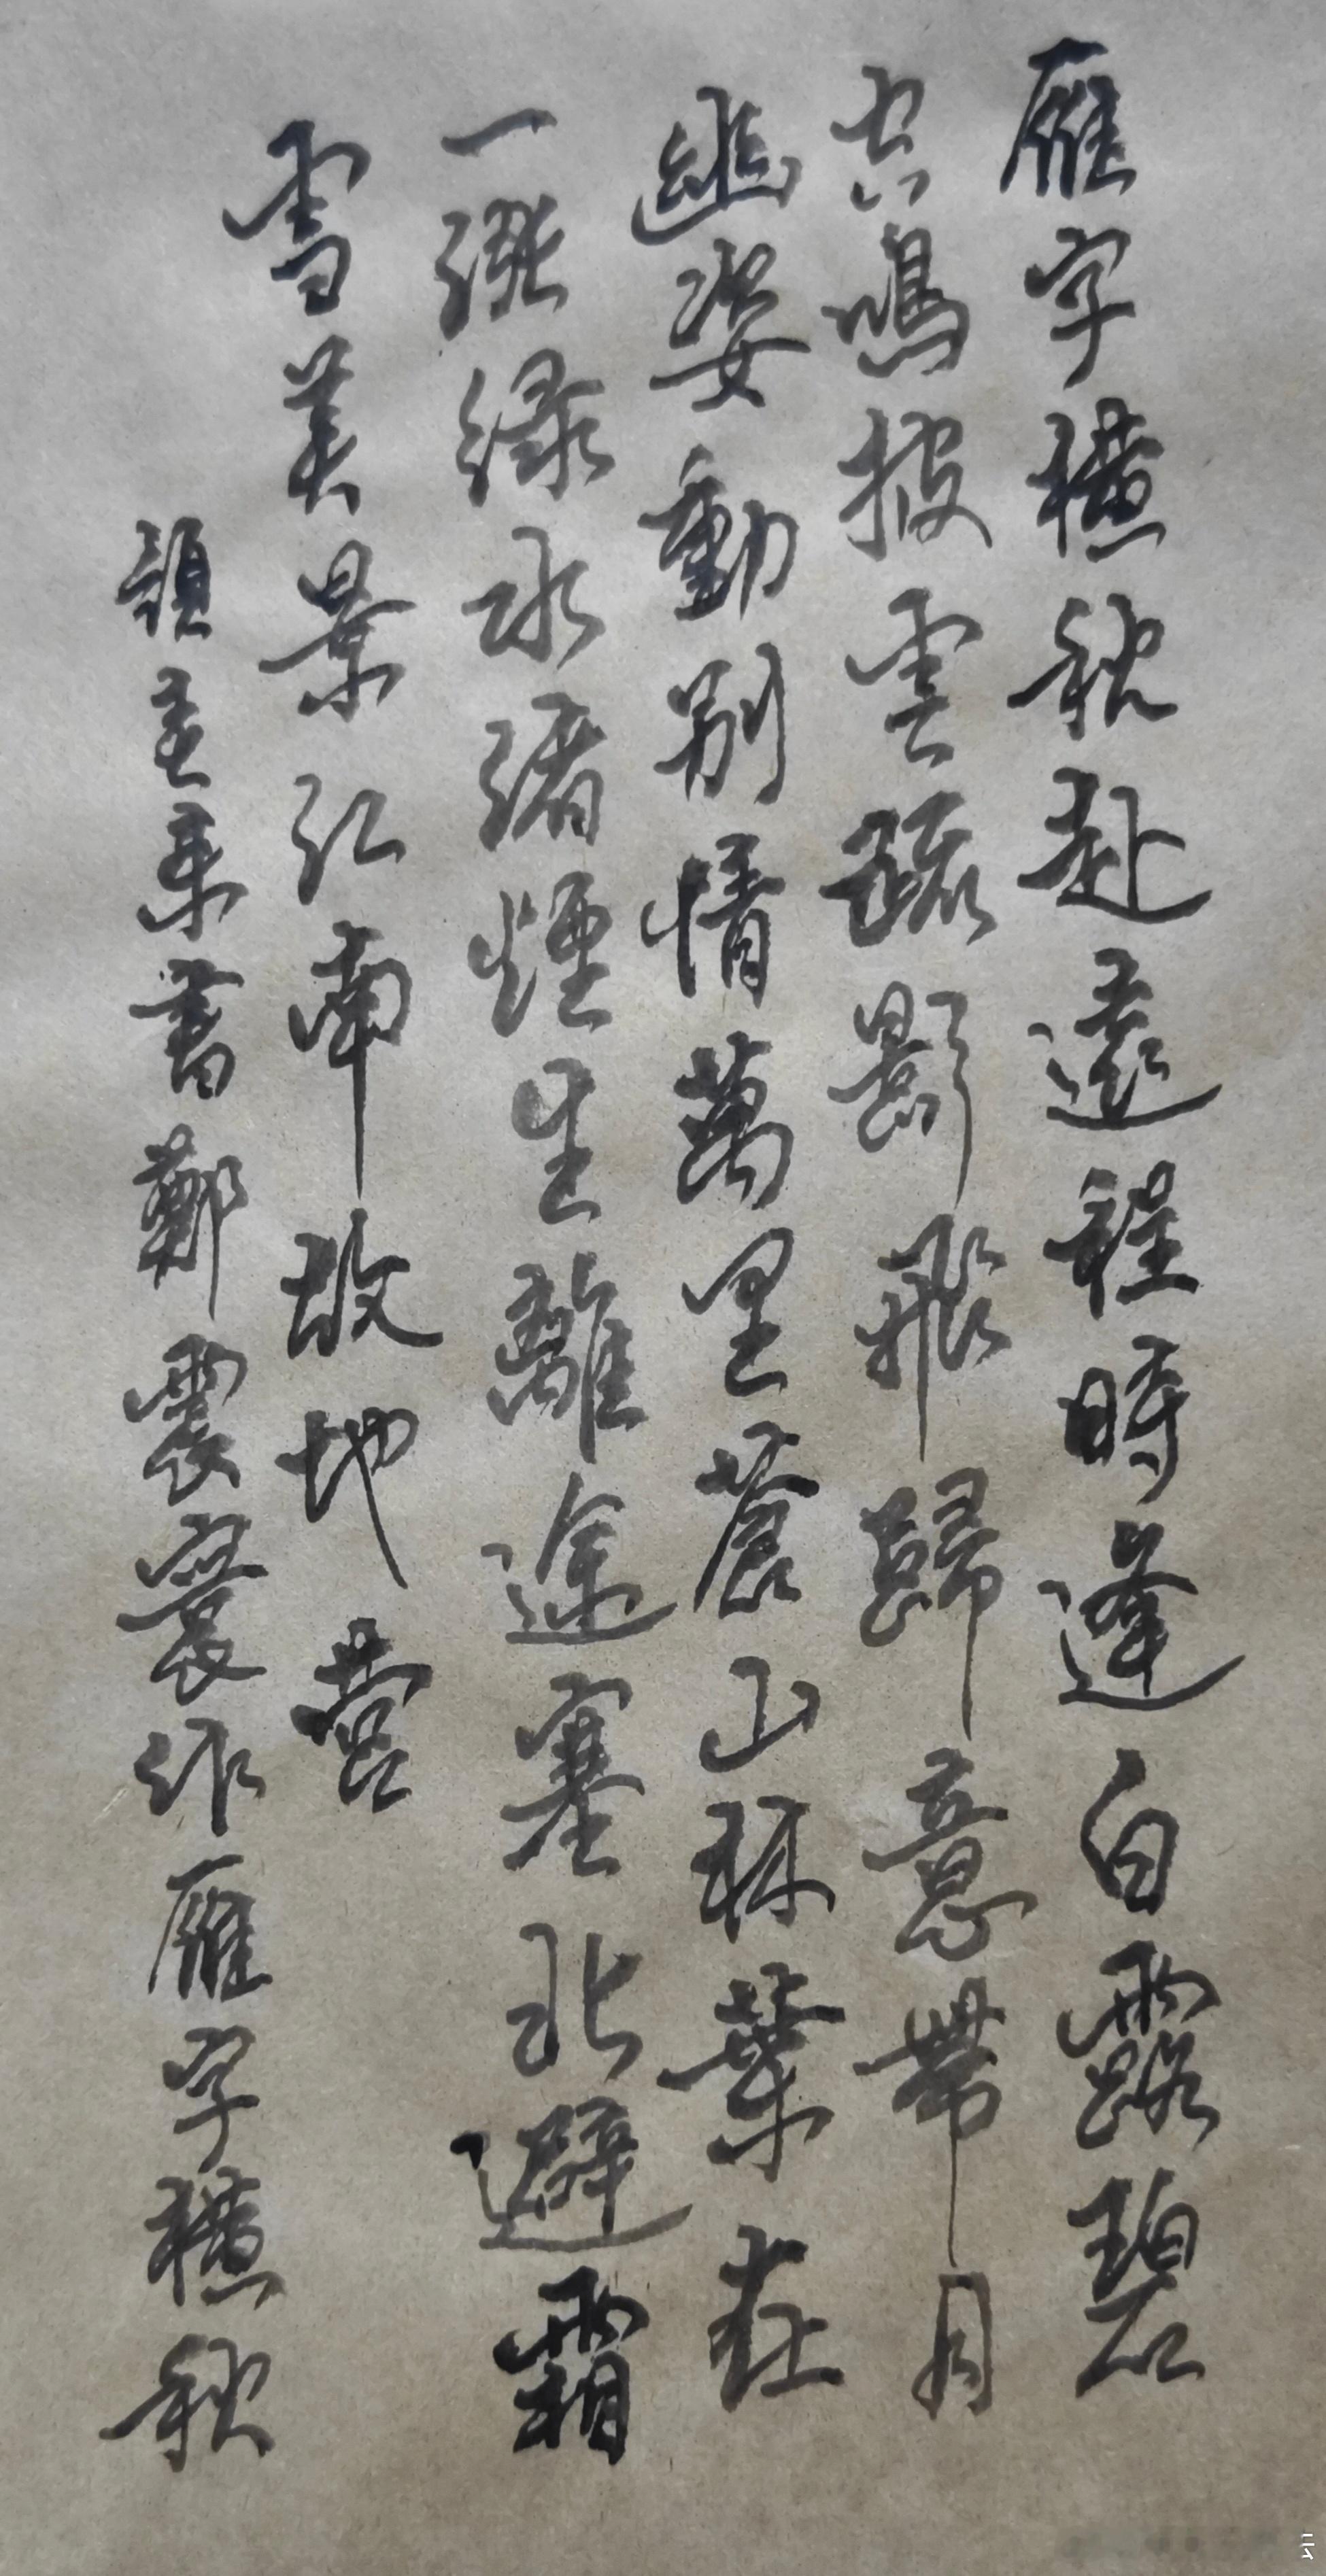 雁字橫秋赴遠程時逢白露碧
空鳴披雲疏影飛歸意帶月
幽姿動別情萬里蒼山秋葉在
一漲綠水渚煙生離途塞北避霜
雪美景江南故地營
領主來書鄭震寰作雁字橫秋